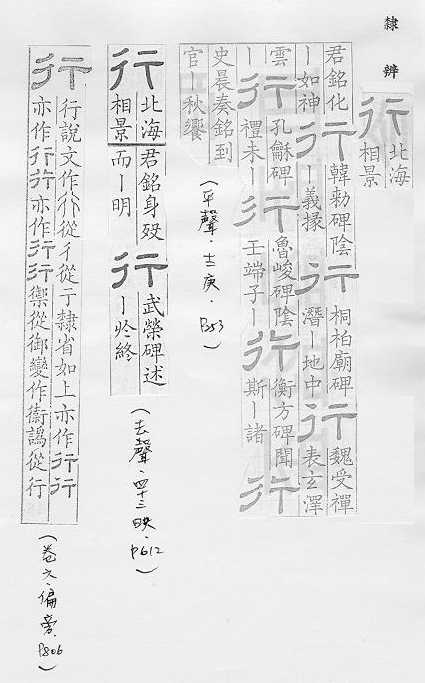 隸辨
行 北海
相景
君銘化
｜如神
行 韓勑碑陰
｜義掾
行 桐柏廟碑
潛｜地中
行 魏受禪
表玄澤
雲｜
行 孔龢碑
禮未｜
行 魯峻碑陰
壬端子｜
行 衡方碑聞
斯｜諸
行
史晨奏銘到
官｜秋饗
(平聲．十二庚．P253)
行 北海
相景
君銘身歿
而｜明
行 武榮碑述
｜於終
(去聲．四十三映．P612)
行 行說文作從彳從亍隸省如上亦作行行
亦作行行亦作行行禦從御變作從行
(卷六．偏旁．P806)